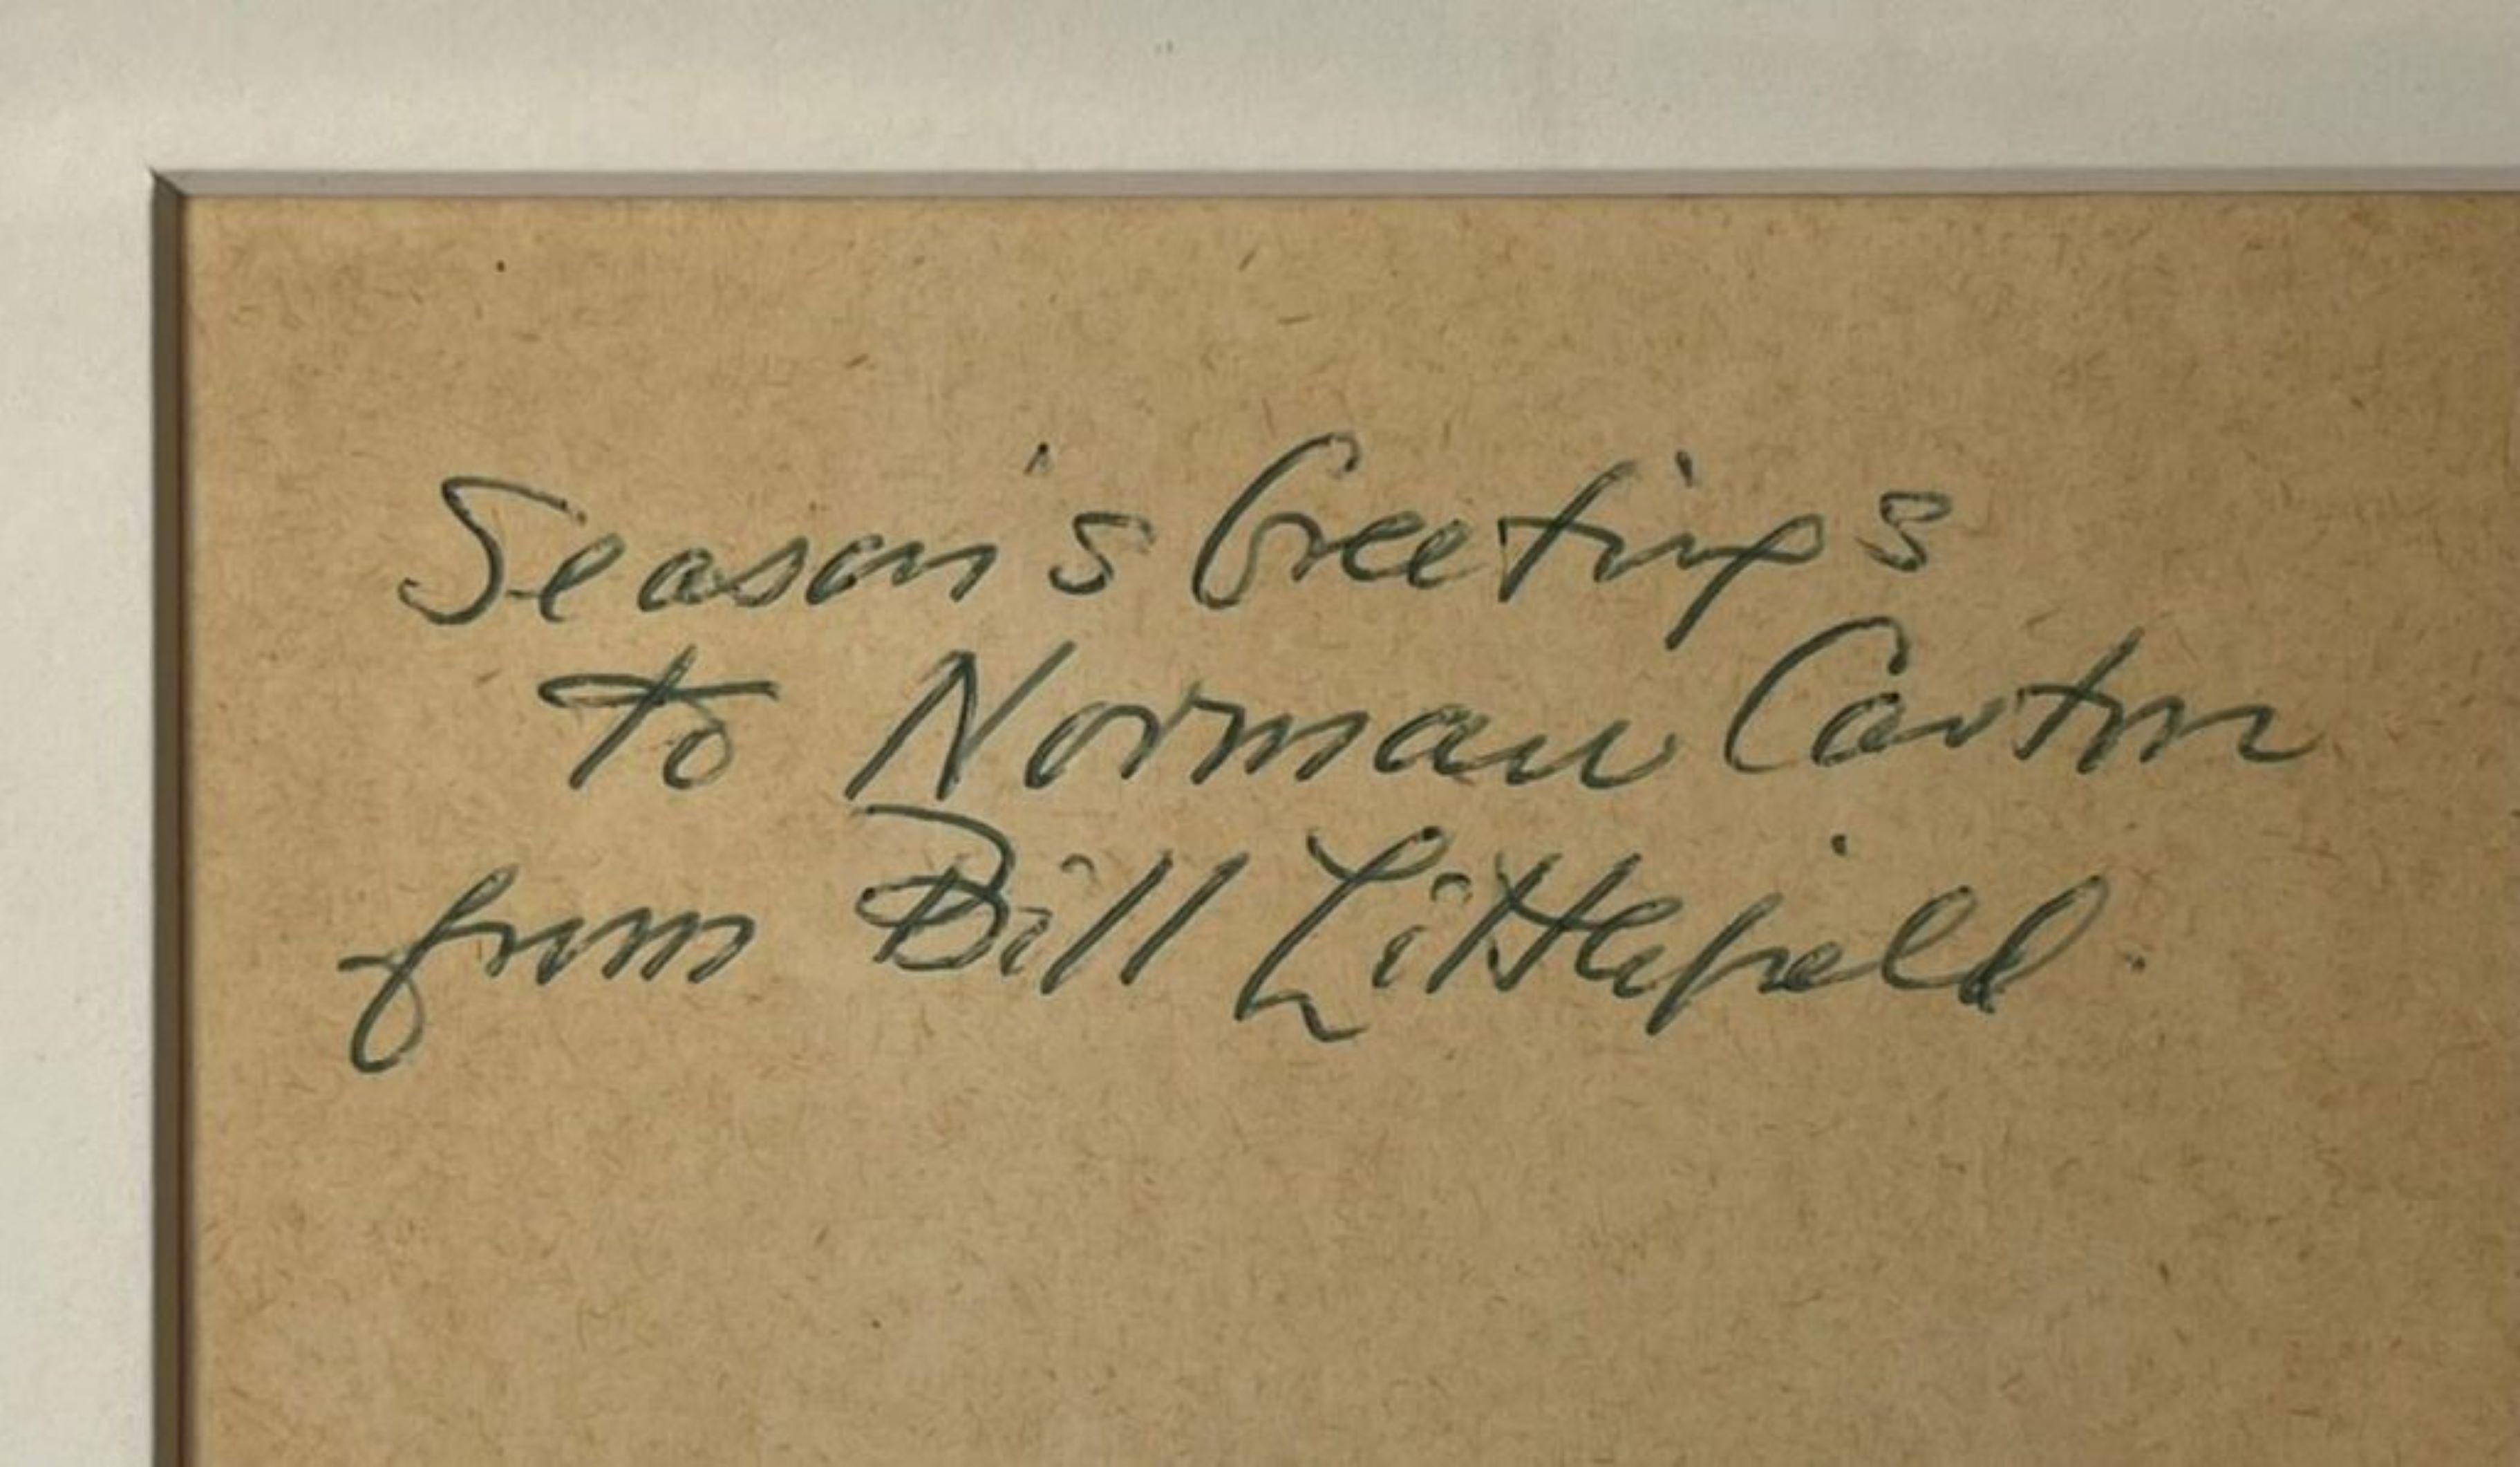 Season's Greetings
to Norman Carton
from Bill Littlefield.